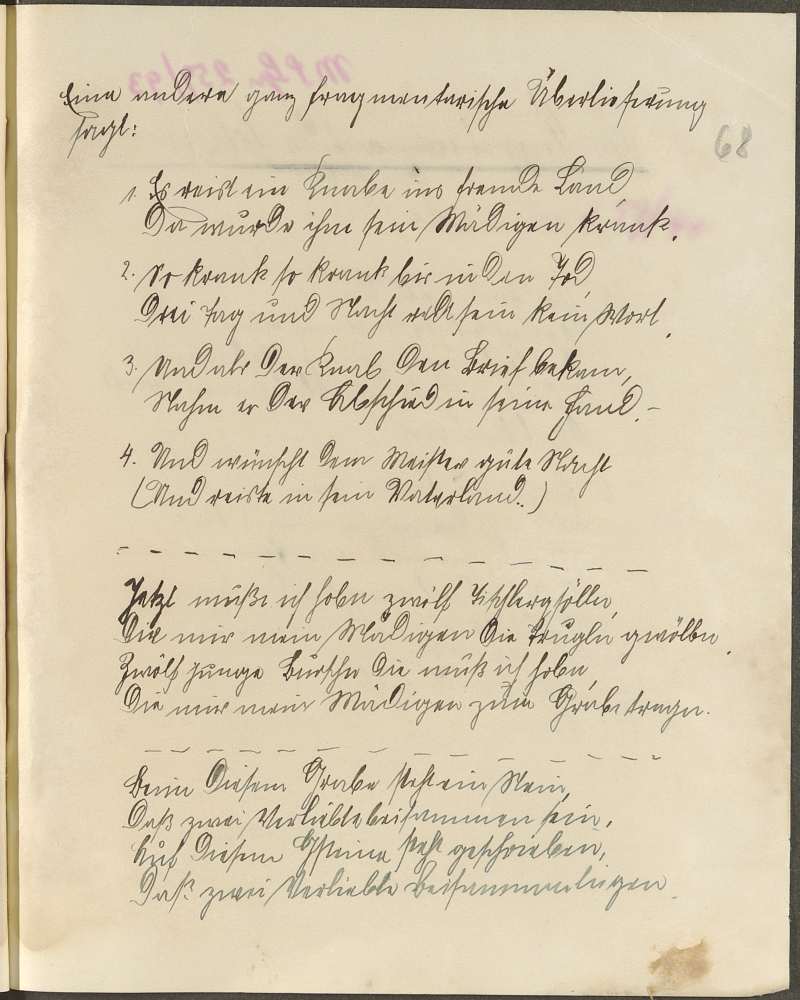 Eine andere ganz fragmentarische Überlieferung
sagt:
68
1. Es reist ein Knabe ins fremde Land
Da wurde ihm sein Mädigen krank.
2. So krank so krank bis in den Tod,
Drei Tag und Nacht redt sein kein Wort.
3. Und als der Knab den Brief bekam,
Nahm er der Abschied in seine Hand. –
4. Und wünscht dem Meister gute Nacht
(Und reiste in sein Vaterland.)
Jetzt muß ich hobn zwölf Tischlergsölln,
Die mir mein Mädigen die Trugln gwölbn.
Zwölf junge Burschn die muß ich hobn,
Die mir mein Mädigen zum Grabe tragn.
Beim diesem Grabe steht ein Stein,
Daß zwei Verliebte beisammen sein.
Auf diesem Gsteine steht geschrieben,
Daß zwei Verliebte beisammenliegen.